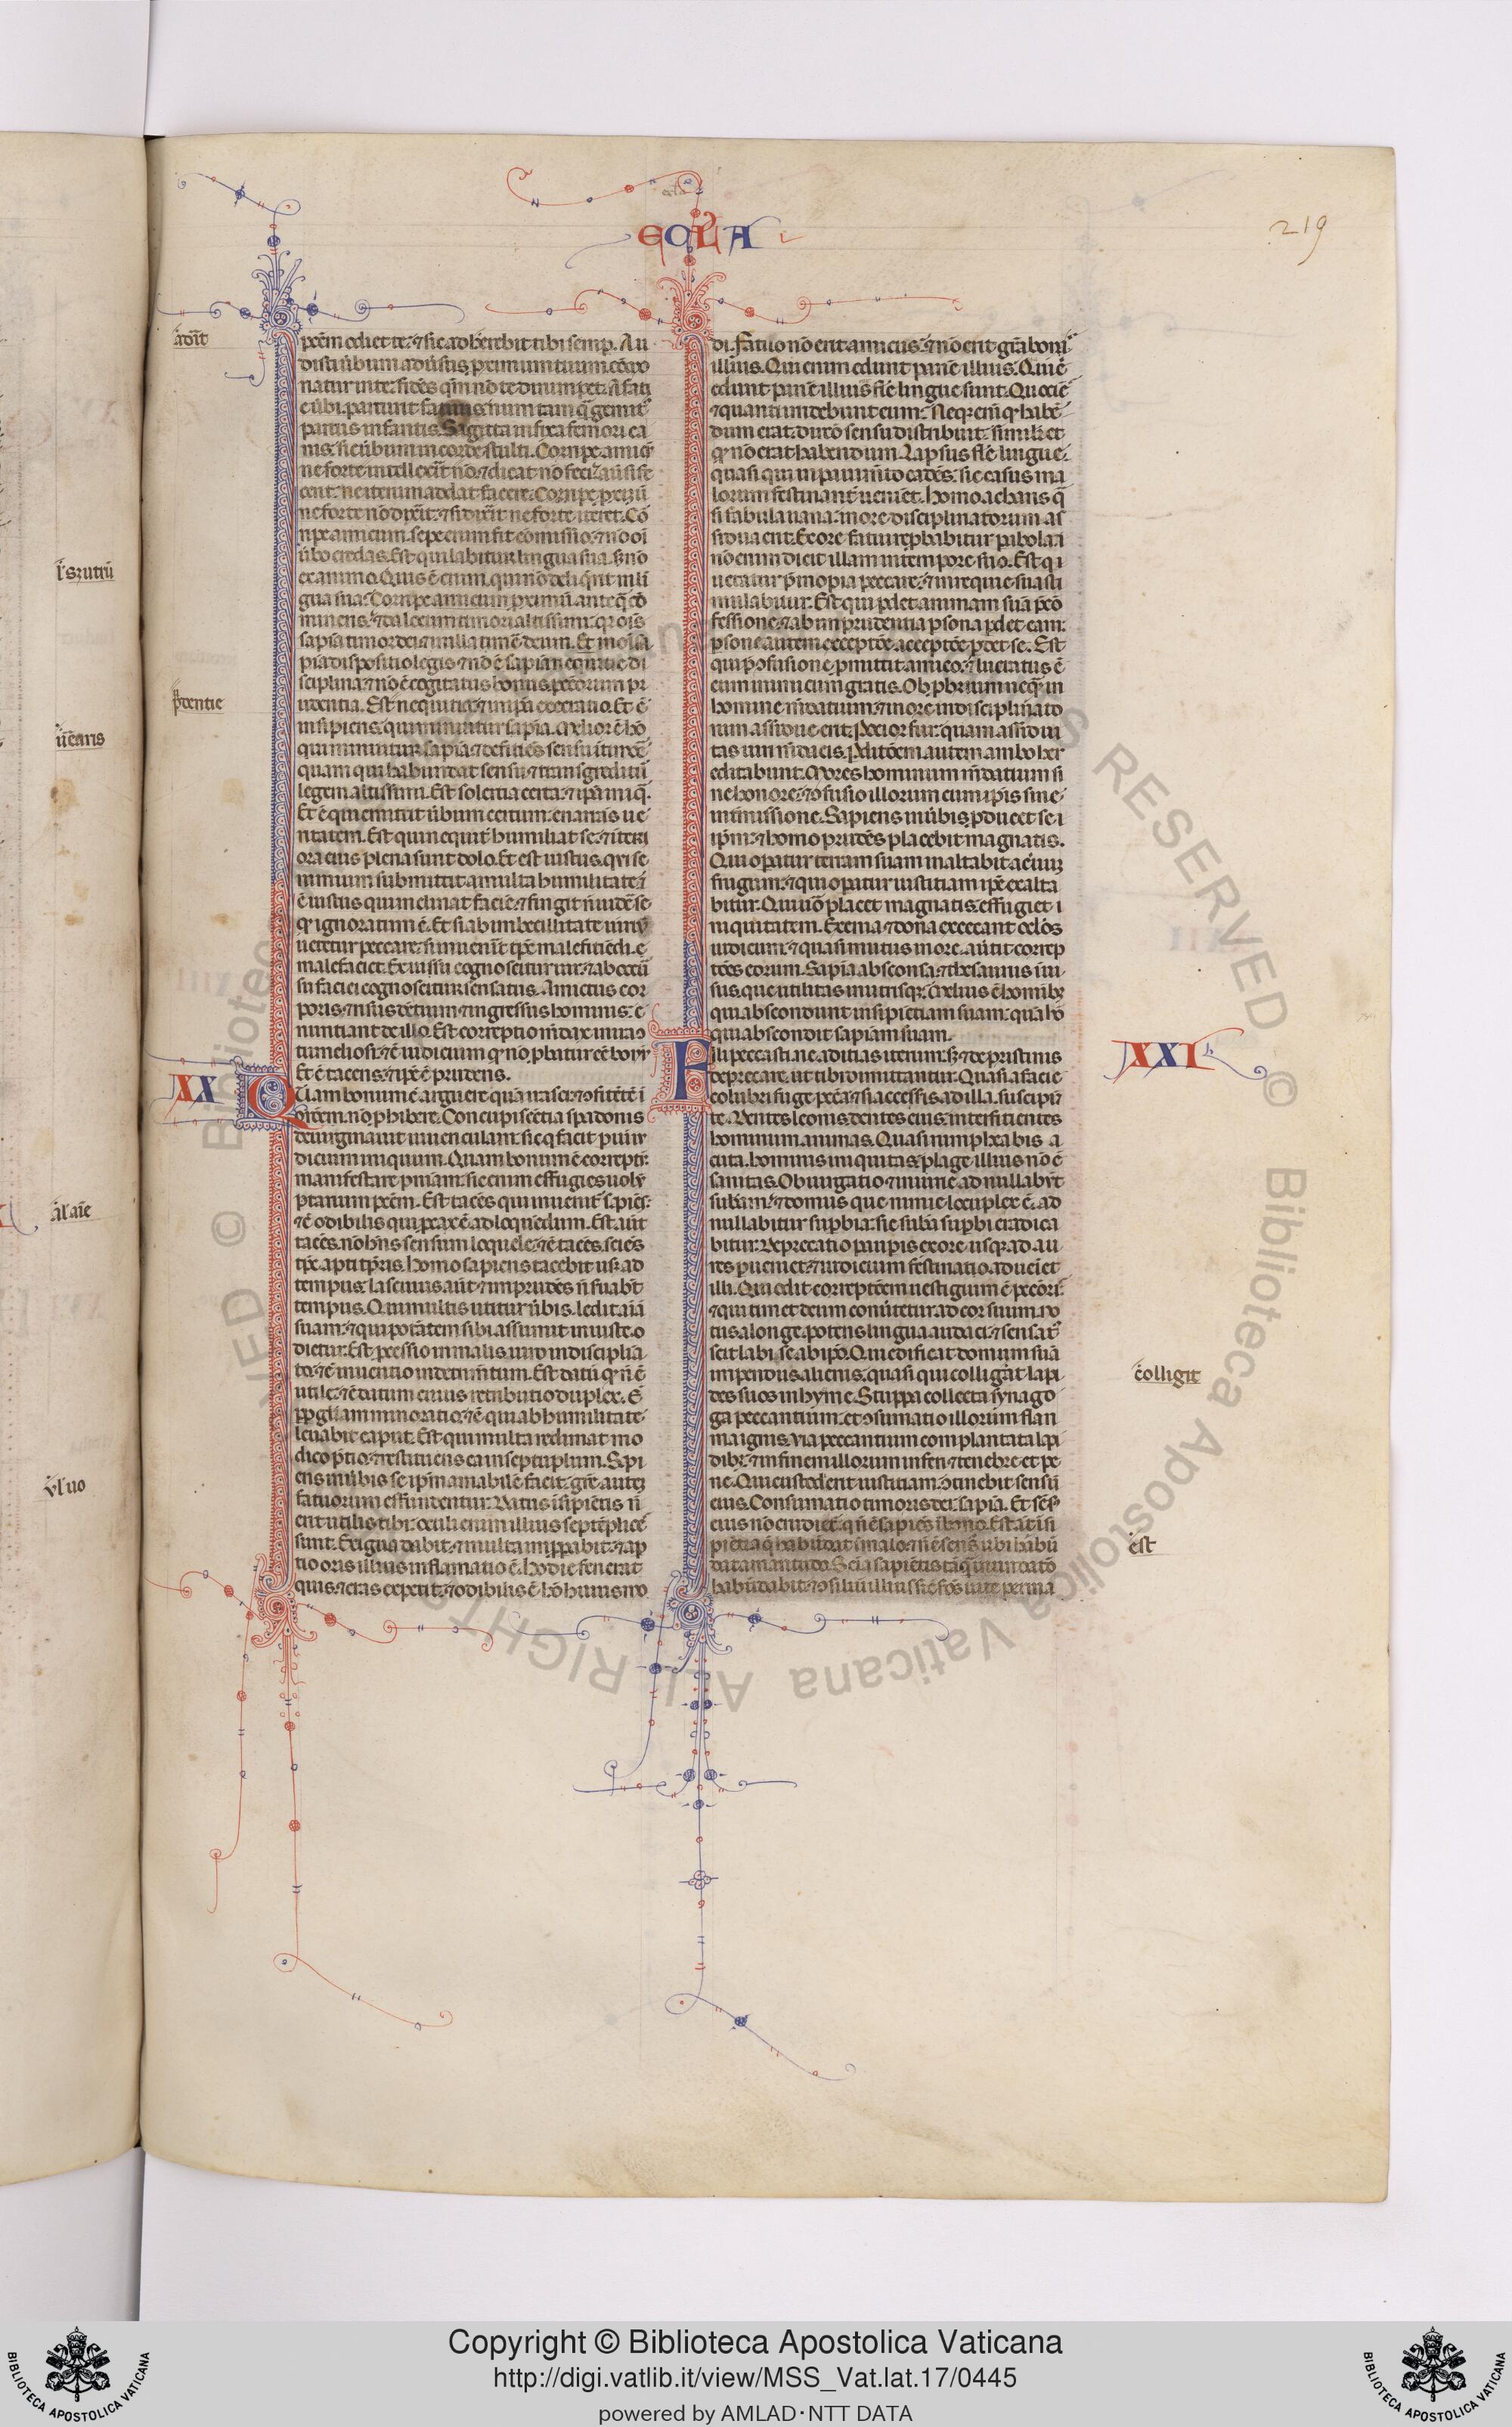 ECCLA
219
pccm odiet te. ⁊ sic adherebit tibi semp. Au
disti ubum aduersus proximum tuum. cōmo
riatur in te. fidēs qm̄ nō te dirumpet. A faci
e ubi. parturit fatuus
partus infantis. Sagitta infixa femori ca
nis. sic ūbum in corde stulti. Corripe amicū
ne forte intellexit nō. ⁊ dicat nō feci. aut si fe
cerit. ne iterum addat facere. Corripe proximū
ne forte nō dixerit. ⁊ si dixerit ne forte iteret. Cor
ripe amicum. sepe enim fit cōmissio. ⁊ nō oī
ūbo credas. Est qui labitur lingua sua. sʒ nō
ex animo. Quis ē enim. qui nō deliqrit in lī
gua sua. Corripe amicum proximū anteq̄ cō
mineris. ⁊ da locum timori altissimi. qr omīs
sapīa timor dei. ⁊ in illa timē deum. Et in oī sa
pīa dispositio legis. ⁊ nō ē sapīa nequitie di
sciplina. ⁊ nō ē cogitatus bonus. pctōrum pr
udentia. Est nequitia. ⁊ in ipa execratio. Et ē
insipiens. qui minuitur sapīa. Melior ē hō
qui minuitur sapīa ⁊ deficiēs sensu in timore
quam qui habundat sensu ⁊ transgreditur
legem altissimi. Est solertia certa. ⁊ ipa iniq̄.
Et ē qui emittit ūbum certum enarrās ue
ritatem. Est qui nequit̄ humiliat se. ⁊ interi
ora eius plena sunt dolo. Et est iustus. qui se
nimium submittit a multa humilitate. ⁊
ē iustus qui inclinat faciē. ⁊ fingit n̄ uidē se
qr ignoratum ē. Et si ab inbecillitate uiriū
uetetur peccare. si inuenit tp̄e malefaciēdi. e
malefaciet. Ex uisu cognoscitur uir. ⁊ ab occursū
faciei cognoscitur sensatus. Amictus cor
poris. ⁊ risus dētium. ⁊ ingressus hominis. e
nuntiant de illo. Est correptio mēdax in ira ɔ
tumeliosi. ⁊ ē iudicium qr nō probatur eē bonū
Et ē tacens. ⁊ ipe ē prudens.
XX
Quam bonum ē arguere quā irasci. ⁊ ɔfitētē ī
orōem nō phibere. Concupiscētia spadonis
deuirginauit iuuenculam. sic q facit p uim
dicium iniquum. Quam bonum ē correptū.
manifestare pniam. sic enim effugies uolū
ptarium pccm̄. Est tacēs qui inuenit̄ sapiēs.
⁊ ē odibilis qui procax ē ad loquēdum. Est aūt
tacēs. nō hn̄s sensum loquele. ⁊ ē tacēs. sciēs
tp̄s apti tp̄ris. Homo sapiens tacebit usqʒ ad
tempus. lasciuus aūt ⁊ imprudēs n̄ suabūt
tempus. Qui multis utitur ūbis. ledit aīa
suam. ⁊ qui potātem sibi assumit iniuste. o
dietur. Est processio in malis uiro indisciplina
to. ⁊ ē inuentio in detrim̄tum. Est datū qr n̄ ē
utile. ⁊ ē datum cuius retributio duplex. E
pp gl̄iam minoratio. ⁊ ē qui ab humilitate
leuabit caput. Est qui multa redimat mo
dico p̄tio. ⁊ restituens ea in septuplum. Sapi
ens in ūbis se ipm̄ amabilē facit. grē autē
fatuorum effundentur. Datus īsipiētis n̄
erit utilis tibi. oculi enim illius septēplices
sunt. Exigua dabit. ⁊ multa impropabit. ⁊ ap
tio oris illius inflāmatio ē. hodie fenerat
quis. ⁊ cras expetit. ⁊ odibilis ē hō huius mo
di. Fatuo nō erit amicus. ⁊ nō erit grā bonis
illius. Qui enim edunt panē illius. Qui ē
edunt panē illius flē lingue sunt. Quociē
⁊ quanti irridebunt eum. Neqʒ enī qr habē
dum erat. directo sensu distribuit. simil̄r et
qr nō erat habendum. Lapsus flē lingue.
quasi qui in pauim̄to cadēs. sic casus ma
lorum festinant̄ ueniet. Homo acharis q̄
si fabula uana. in ore disciplinatorum as
sidua erit. Ex ore fatui reprobabitur parabola. ⁊
nō enim dicit illam in tempore suo. Est q̄ i
uetatur p̄ inopia peccare. ⁊ in requie sua sti
mulabitur. Est qui pdet animam suā pre cō
fessione. ⁊ ab inprudentia persona pdet eam.
psone autem exceptōe acceptōe pdet se. Est
qui p̄ ɔfusione pmittit amico. ⁊ lucratus ē
eum inimicum gratis. Obprobrium neq̄ in
homine m̄datium. ⁊ in ore indisciplinato
rum assidue erit. Pocior fur. quam assidui
tas uiri m̄dacis. perditōem autem ambo her
editabunt. Mores hominum m̄datium si
ne honore. ⁊ ɔfusio illorum cum ipis sine
intmissione. Sapiens in ūbis. pducet se i
ipm̄. ⁊ homo prudēs placebit magnatis.
Qui operatur terram suam inaltabit aceruūʒ
frugum. ⁊ qui operatur iustitiam ipe exalta
bitur. Qui uō placet magnatis. effugiet i
niquitatem. Exenia ⁊ dona excecant ocl̄os
iudicum. ⁊ quasi mutus in ore. auertit correp
tōes eorum. Sapīa absconsa. ⁊ thesaurus īui
sus. que utilitas in utrisqʒ. Melius ē homībʒ
qui abscondunt insipiētiam suam. quā hō
qui abscondit sapīam suam.
XXI
Fili peccasti. ne adicias iterum. sʒ ⁊ de pristinis
deprecare. ut tibi dimittantur. Quasi a facie
colubri fuge pctā. ⁊ si accessis ad illa. suscipiēt
te. Dentes leonis. dentes eius. interficientes
hominum animas. Quasi rumphea bis a
cuta. hominis iniquitas. plage illius nō ē
sanitas. Obiurgatio ⁊ iniurie adnullabūt
subām. ⁊ domus que nimie locuplex ē. ad
nullabitur supbia. sic subā supbi eradica
bitur. Deprecatio paupis ex ore usqʒ ad au
res pueniet. ⁊ iudicium festinatio adueniet
illi. Qui odit correptōem uestigium ē pectōris.
⁊ qui timet deum conūtetur ad cor suum. no
tus a longe. potens lingua audaci. ⁊ sensatꝰ
scit labi se ab ipo. Qui edificat domum suā
impendiis alienis. quasi qui colligat lapi
des suos in hyeme. Stuppa collecta synago
ga peccantium. et ɔsumatio illorum flam
ma ignis. Via peccantium complantata lapi
dibʒ. ⁊ in finem illorum inferi ⁊ tenebre et pe
ne. Qui custodierit iustitiam. ɔtinebit sensū
eius. Consumatio timoris dei. sapīa. Et sensꝰ
eius nō erudiet. q n̄ ē sapiēs ī bono. Est aūt īsi
piētia q̄ habūdat ī malo. ⁊ n̄ ē sensꝰ ubi habū
dat amaritudo. Sciā sapiētis tāq̄ inundatō
habūdabit. ⁊ ɔsiliū illius sic fōs uite perma
colligit
est
Copyright © Biblioteca Apostolica Vaticana
http://digi.vatlib.it/view/MSS_Vat.lat.17/0445
powered by AMLAD·NTT DATA
BIBLIOTECA APOSTOLICA VATICANA
BIBLIOTECA APOSTOLICA VATICANA